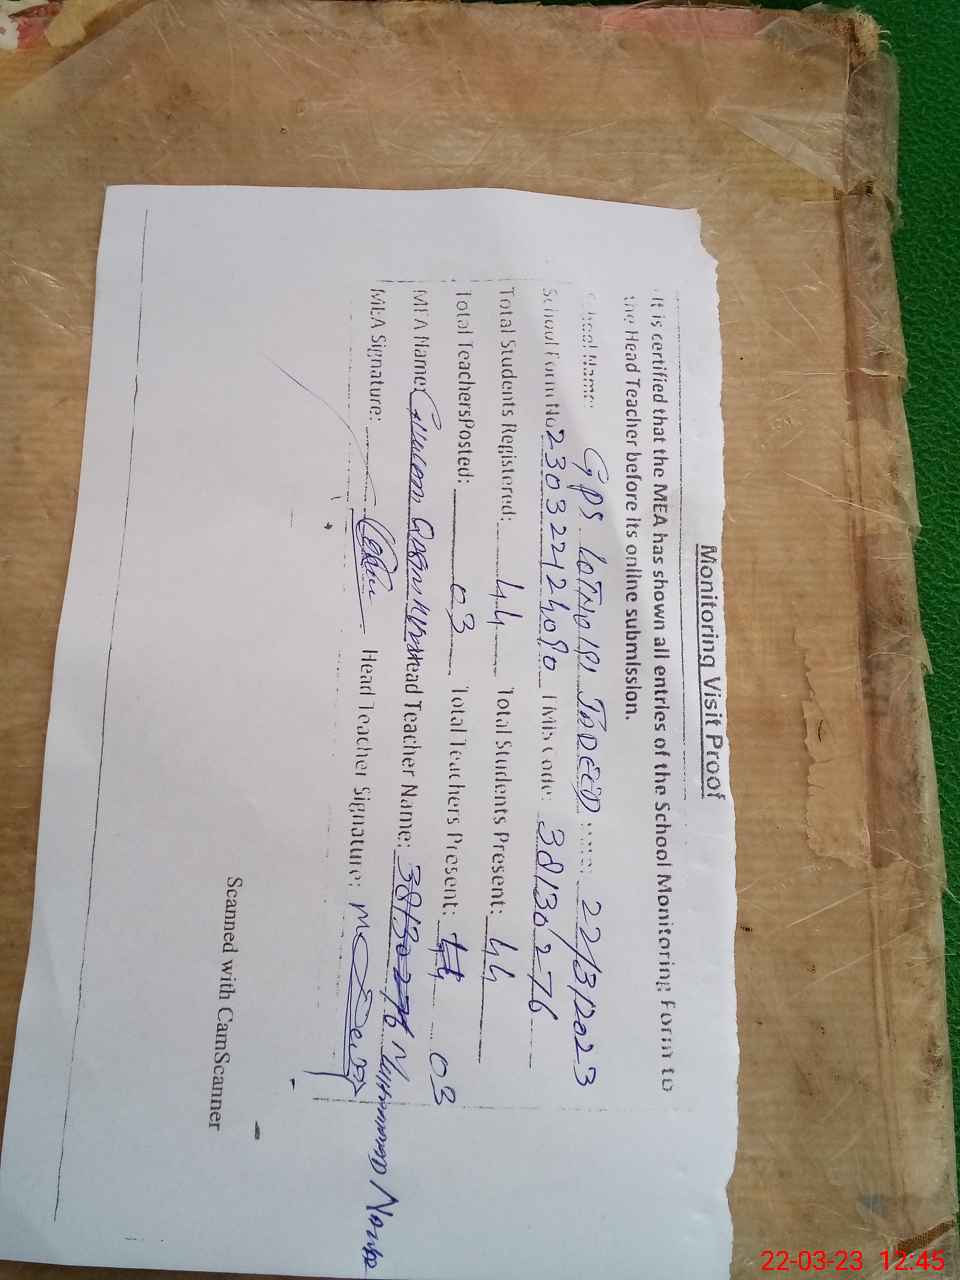 Monitoring Visit Proof
It is certified that the MEA has shown all entries of the School Monitoring Form to
the Head Teacher before its online submission.
School Name: GPS 22/3/2023
School Form No 230322124090 EMIS Code: 38130276
Total Students Registered: 44 Total Students Present: 44
Total TeachersPosted: 03 Total Teachers Present: 03
MEA Name: Head Teacher Name: 38130276 Muhammad
MEA Signature: Head Teacher Signature:
Scanned with CamScanner
22-03-23 12:45